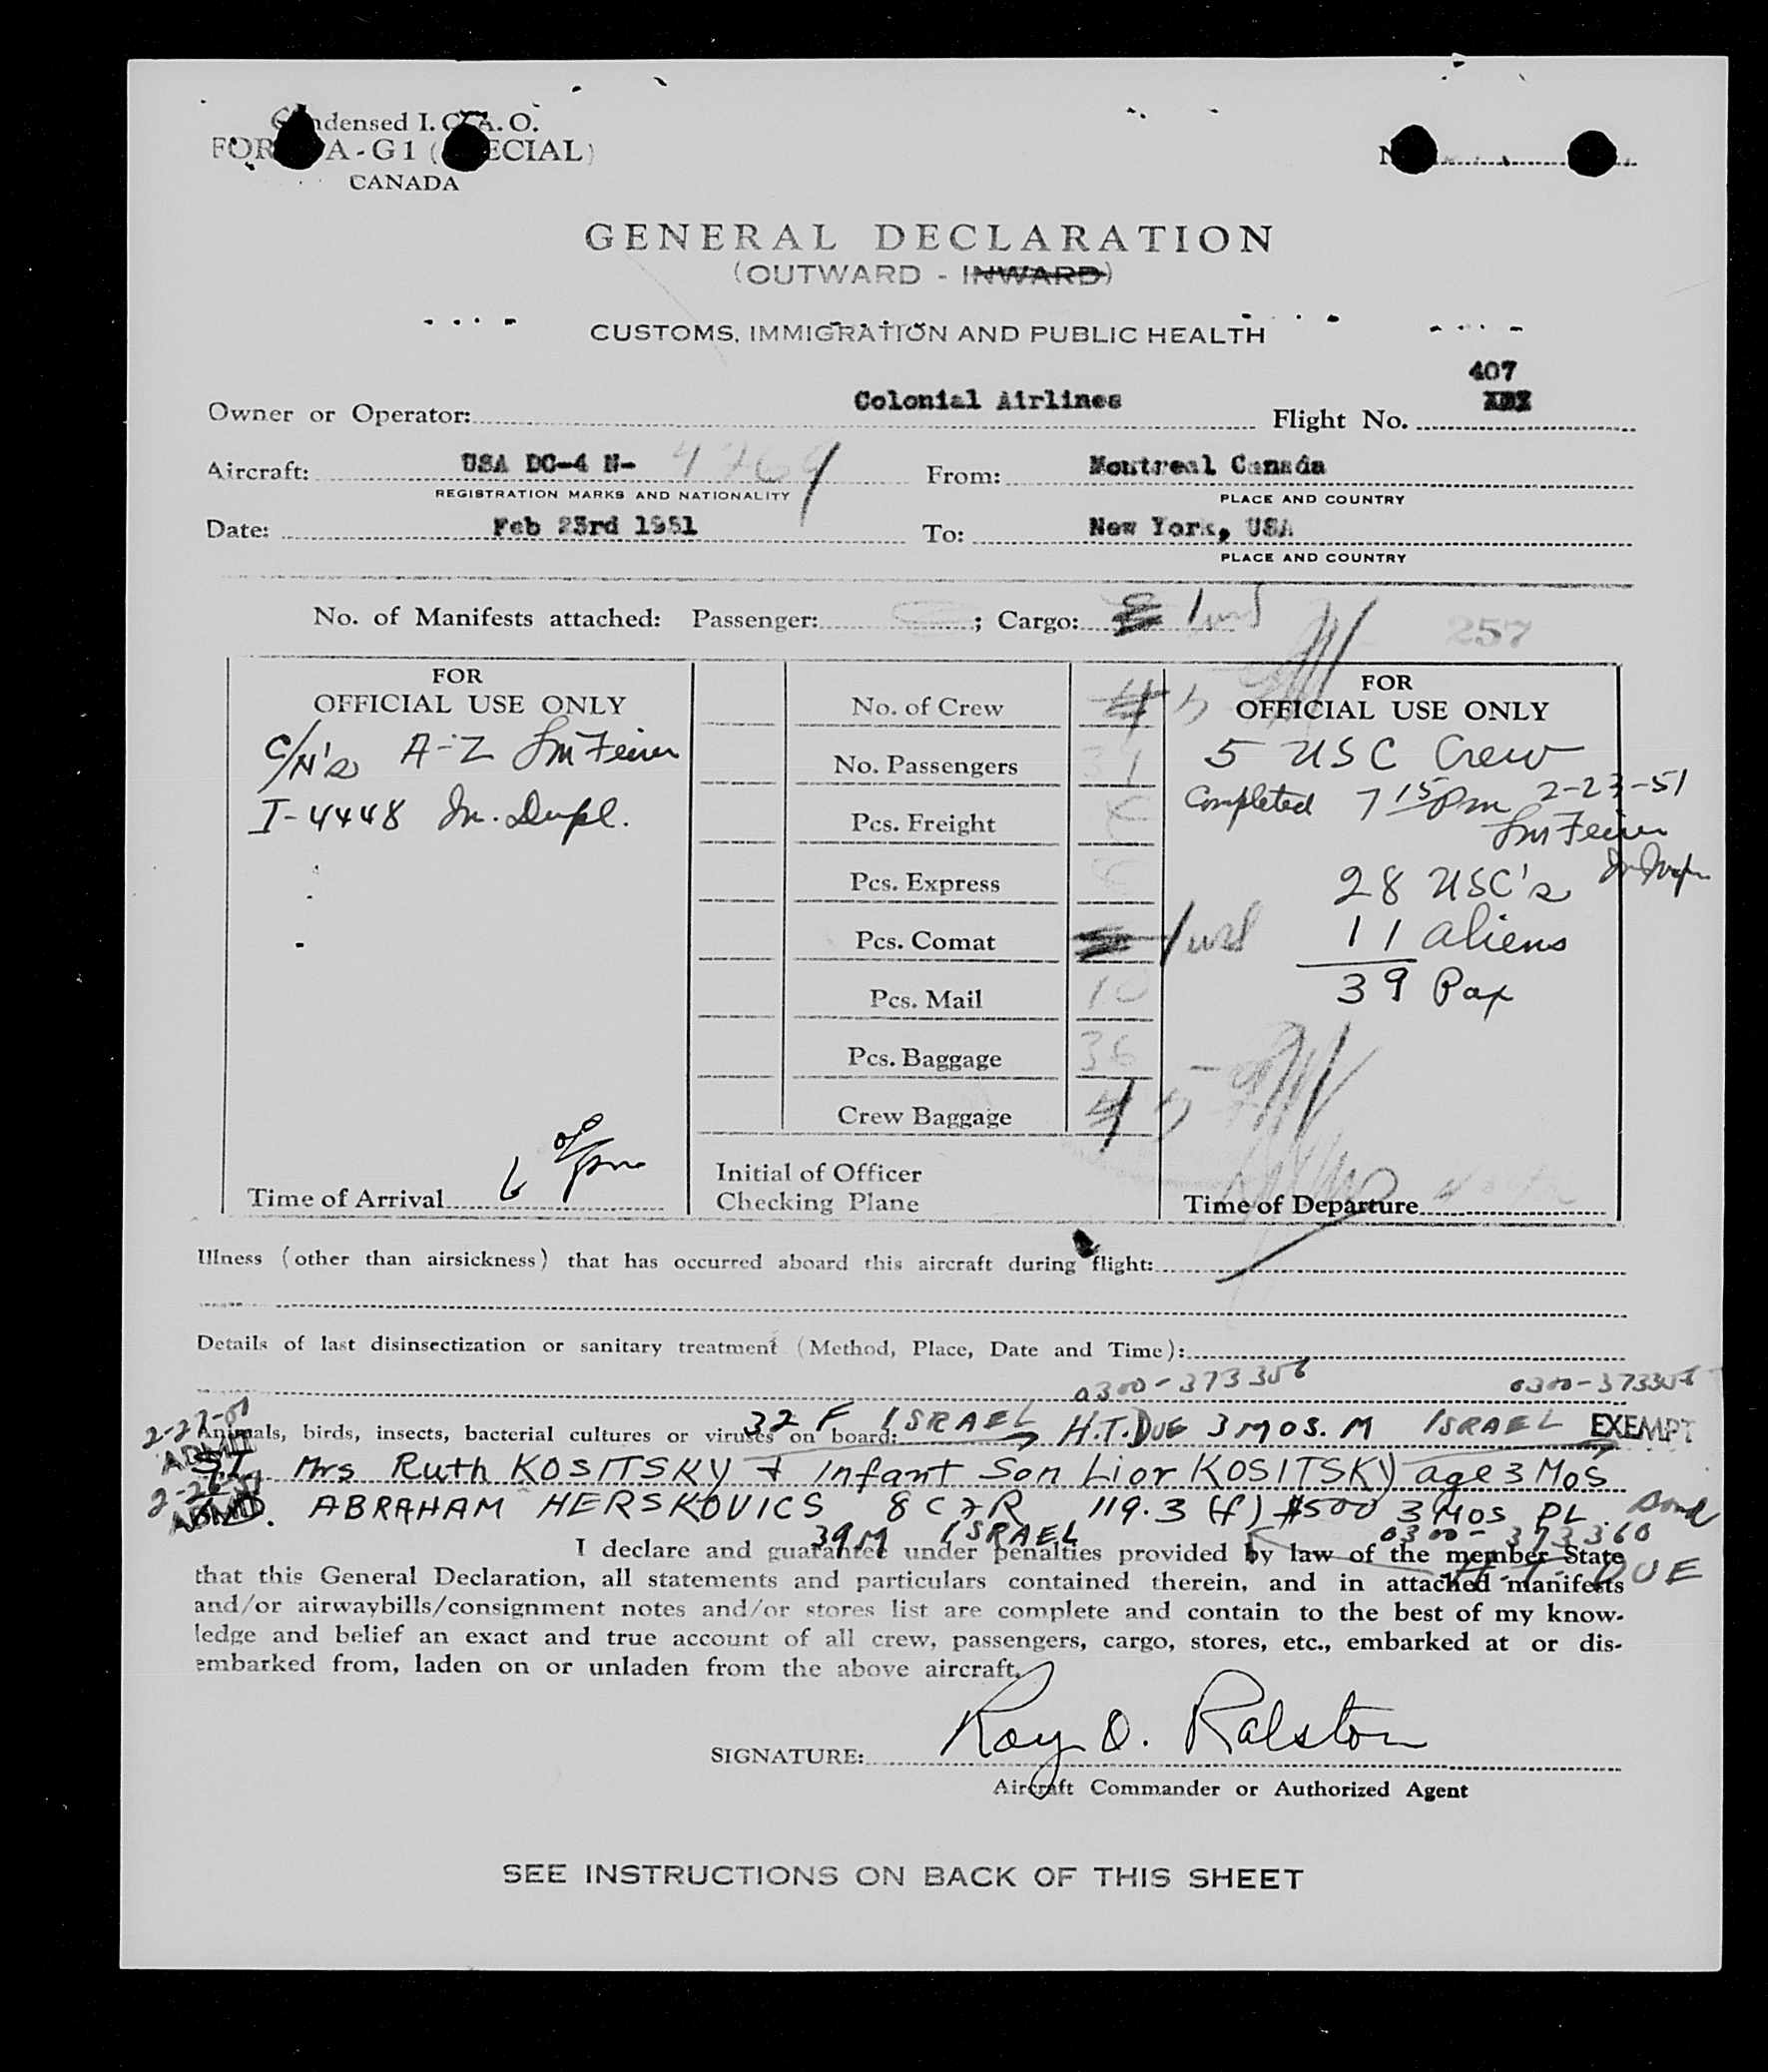 Condensed I. C. A. O.
FORM A-G1 (SPECIAL)
CANADA
GENERAL DECLARATION
(OUTWARD - INWARD)
CUSTOMS, IMMIGRATION AND PUBLIC HEALTH
407
Owner or Operator: Colonial Airlines Flight No.
Aircraft: USA DC-4 N- From: Montreal Canada
REGISTRATION MARKS AND NATIONALITY PLACE AND COUNTRY
Date: Feb 23rd 1951 To: New York, USA
PLACE AND COUNTRY
No. of Manifests attached: Passenger: ; Cargo: 1
257
FOR
OFFICIAL USE ONLY
C/N's A-Z
I-4448
Time of Arrival 6
No. of Crew 5
No. Passengers
Pcs. Freight
Pcs. Express
Pcs. Comat 1
Pcs. Mail 10
Pcs. Baggage
Crew Baggage 5
Initial of Officer
Checking Plane
FOR
OFFICIAL USE ONLY
5 USC Crew
Completed 7 15 Pm 2-23-51
28 USC's
11 aliens
39 Pax
Time of Departure
Illness (other than airsickness) that has occurred aboard this aircraft during flight:
Details of last disinsectization or sanitary treatment (Method, Place, Date and Time):
0300-373356 0300-373356
Animals, birds, insects, bacterial cultures or viruses on board: 32 F ISRAEL H.T. DUE 3 MOS. M ISRAEL EXEMPT
ADMIT
S.I. Mrs Ruth KOSITSKY + Infant Son Lior KOSITSKY age 3 Mos
ADMD. ABRAHAM HERSKOVICS 8 CFR 119.3 (f) $500 3 MOS PL. Bond
39 M ISRAEL 0300-373360
H.T. DUE
I declare and guarantee under penalties provided by law of the member State
that this General Declaration, all statements and particulars contained therein, and in attached manifests
and/or airwaybills/consignment notes and/or stores list are complete and contain to the best of my know-
ledge and belief an exact and true account of all crew, passengers, cargo, stores, etc., embarked at or dis-
embarked from, laden on or unladen from the above aircraft.
SIGNATURE: Roy O. Ralston
Aircraft Commander or Authorized Agent
SEE INSTRUCTIONS ON BACK OF THIS SHEET